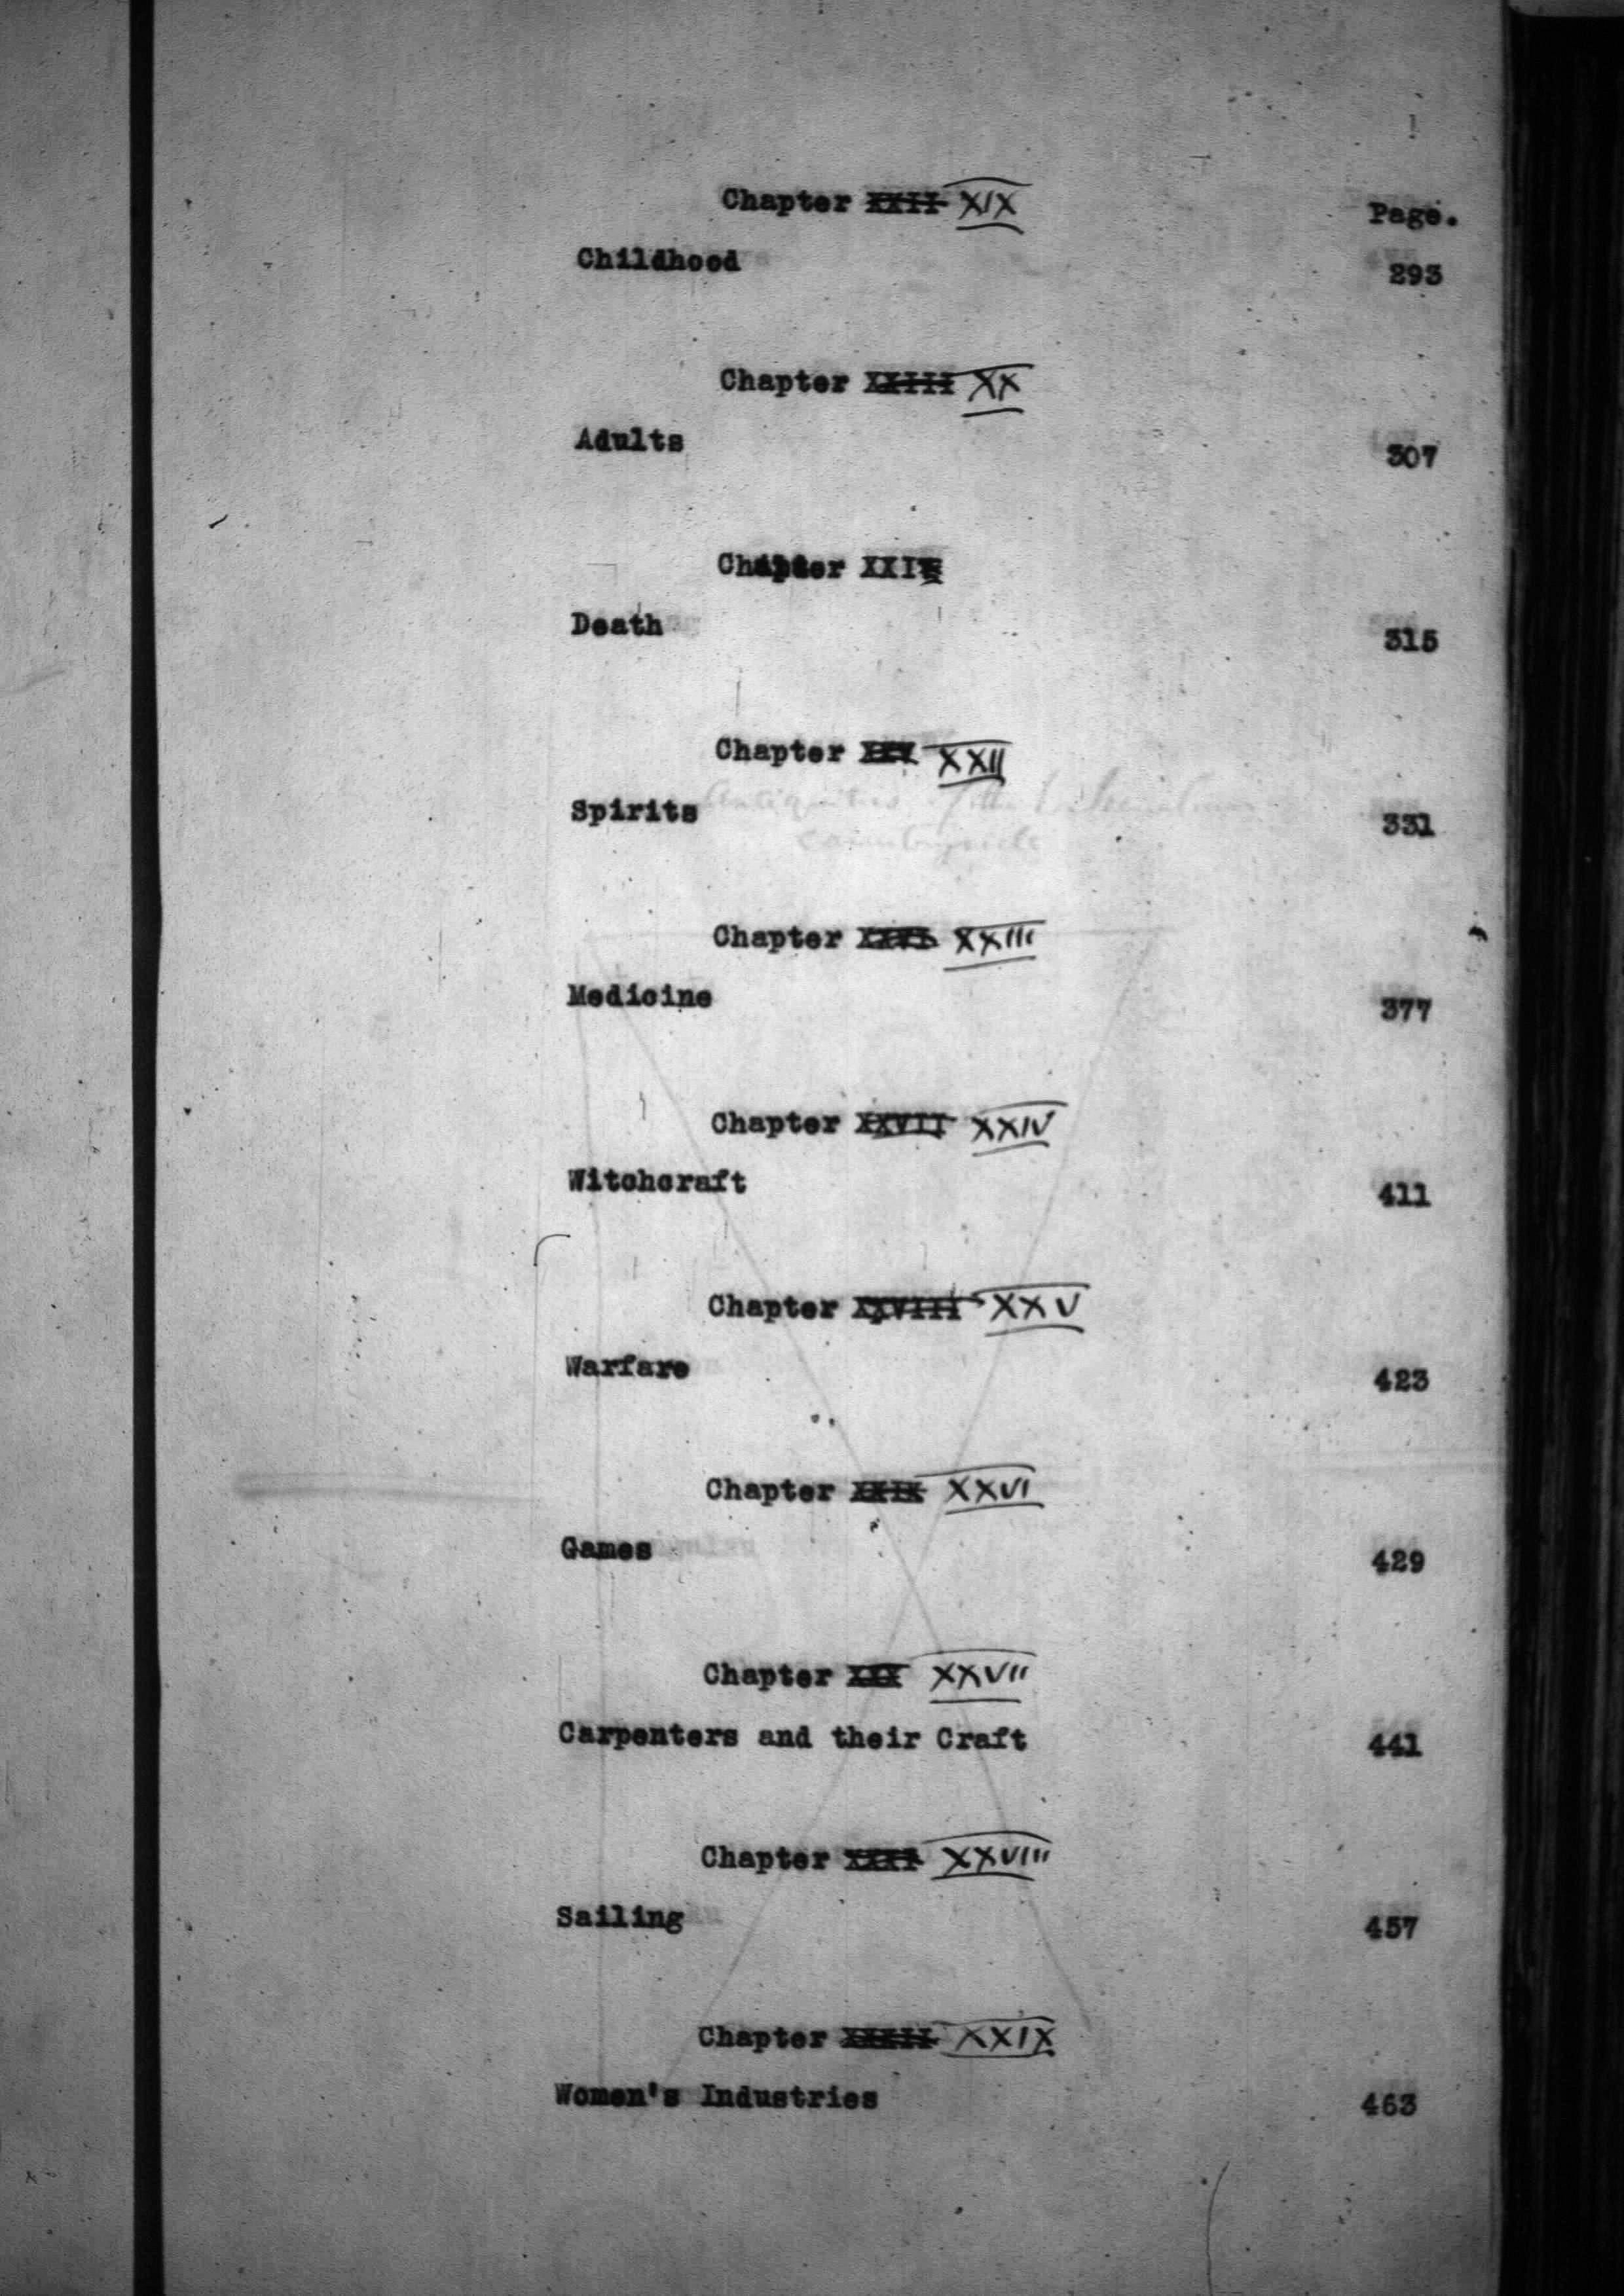 Chapter XXII XIX
Page.
Childhood 293
Chapter XXIII XX
Adults 307
Chapter XXI
Death 315
Chapter XXV XXII
Spirits 331
Chapter XXVI XXIII
Medicine 377
Chapter XXVII XXIV
Witchcraft 411
Chapter XXVIII XXV
Warfare 423
Chapter XXIX XXVI
Games 429
Chapter XXX XXVII
Carpenters and their Craft 441
Chapter XXXI XXVIII
Sailing 457
Chapter XXXII XXIX
Women's Industries 463